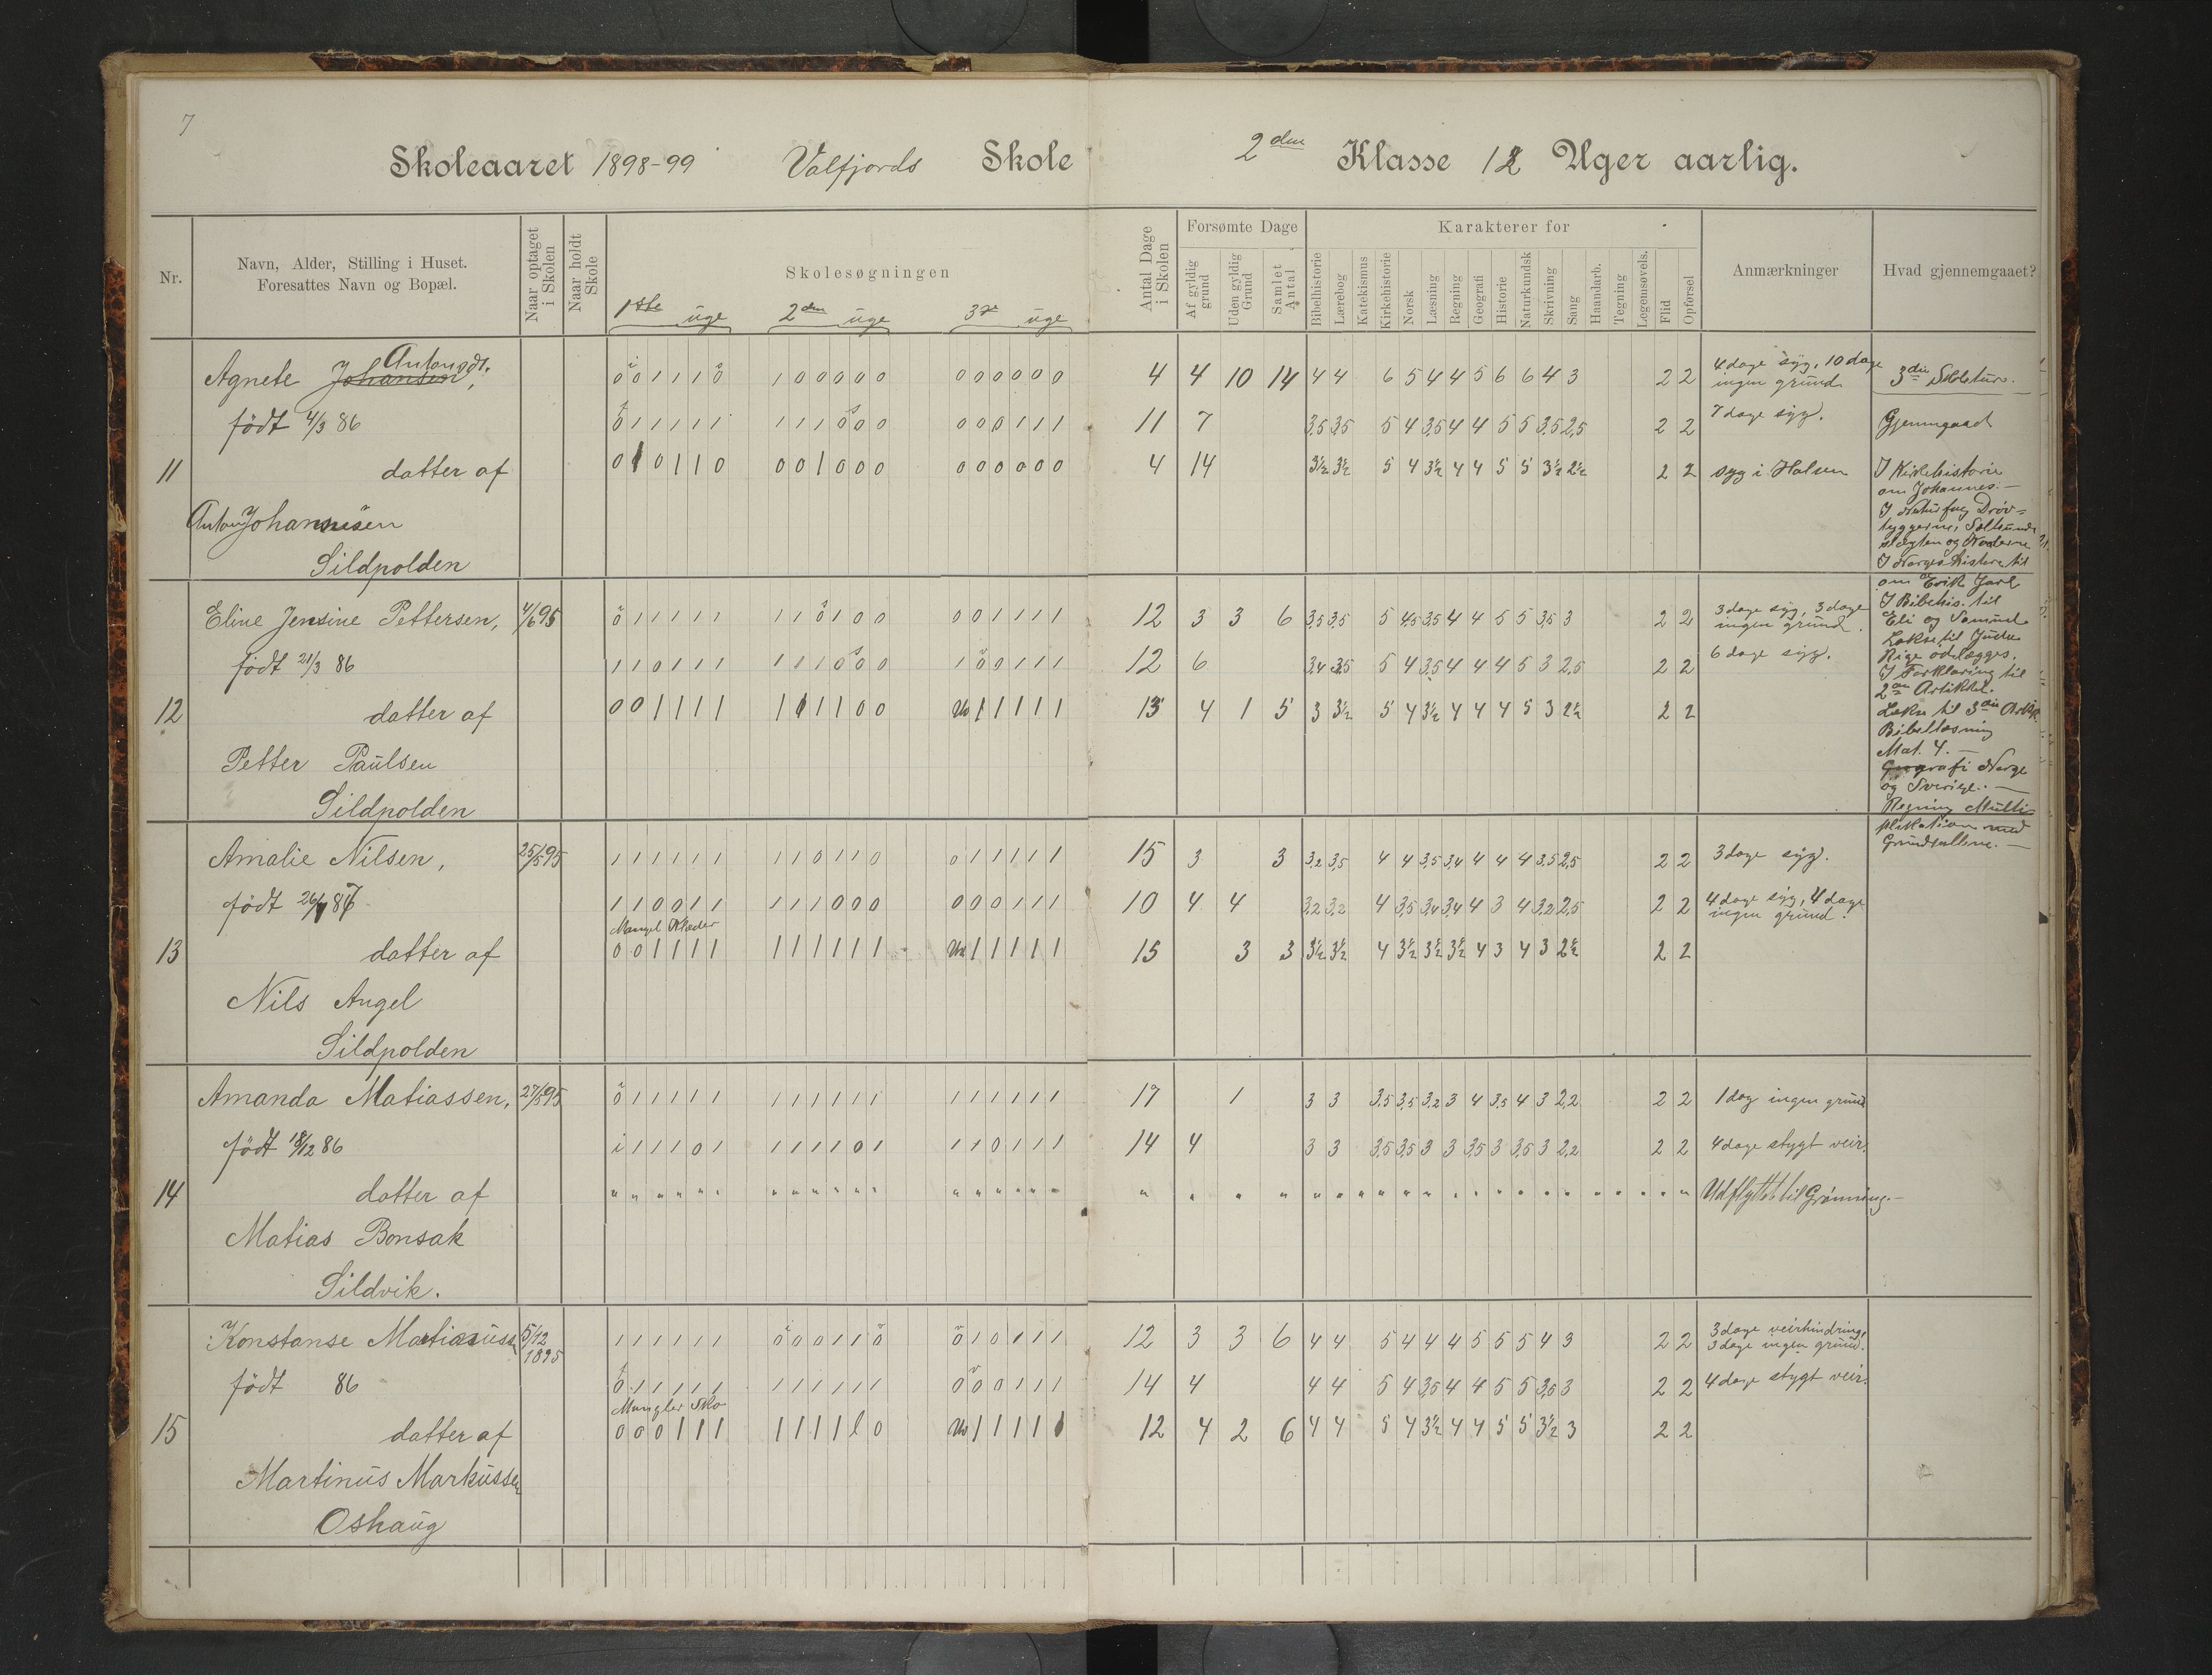 7
Skoleaaret 1898-99 Valfjords Skole 2den Klasse 12 Uger aarlig.
Nr.
Navn, Alder, Stilling i Huset.
Foresattes Navn og Bopæl.
Naar optaget i Skolen
Naar holdt Skole
Skolesøgningen
1ste uge 2den uge 3de uge
Antal Dage i Skolen
Forsømte Dage
Af gyldig grund
Uden gyldig Grund
Samlet Antal
Karakterer for
Bibelhistorie
Lærebog
Katekismus
Kirkehistorie
Norsk
Læsning
Regning
Geografi
Historie
Naturkundsk
Skrivning
Sang
Haandarb.
Tegning
Legemsøvels.
Flid
Opførsel
Anmærkninger
Hvad gjennemgaaet?
Agnete Johansen, Antonsdt.
0 0 1 1 1 0 1 0 0 0 0 0 0 0 0 0 0 0 4 4 10 14 4 4 6 5 4 4 5 6 6 4 3 2 2 4 dage syg, 10 dage
ingen grund
født 4/3 86
0 1 1 1 1 1 1 1 1 0 0 0 0 0 0 1 1 1 11 7 3,5 3,5 5 4 3,5 4 4 5 5 3,5 2,5 2 2 7 dage syg.
11 datter af
0 1 0 1 1 0 0 0 1 0 0 0 0 0 0 0 0 0 4 14 3½ 3½ 5 4 3½ 4 4 5 5 3½ 2½ 2 2 syg i Halsen
Anton Johannesen
Sildpolden
Eline Jensine Pettersen, 4/6 95
0 1 1 1 1 1 1 1 0 1 0 0 0 0 1 1 1 1 12 3 3 6 3,5 3,5 5 4,5 3,5 4 4 5 5 3,5 3 2 2 3 dage syg, 3 dage
ingen grund.
født 21/3 86
1 1 0 1 1 1 1 1 1 0 0 0 1 0 0 1 1 1 12 6 3,4 3,5 5 4 3,5 4 4 4 5 3 2,5 2 2 6 dage syg.
12 datter af
0 0 1 1 1 1 1 1 1 1 0 0 1 1 1 1 1 13 4 1 5 3 3½ 5 4 3½ 4 4 4 5 3 2½ 2 2
Petter Paulsen
Sildpolden
Amalie Nilsen, 25/5 95
1 1 1 1 1 1 1 1 0 1 1 0 0 1 1 1 1 1 15 3 3 3,2 3,5 4 4 3,5 3,4 4 4 4 3,5 2,5 2 2 3 dage syg.
født
1 1 0 0 1 1 1 1 1 0 0 0 0 0 0 1 1 1 10 4 4 3,2 3,2 4 3,5 3,4 3,4 4 3 4 3,2 2,5 2 2 4 dage syg, 4 dage
ingen grund.
Mangel Klæder
13 datter af
0 0 1 1 1 1 1 1 1 1 1 1 1 1 1 1 1 15 3 3 3½ 3½ 4 3½ 3½ 3½ 4 3 4 3 2½ 2 2
Nils Angel
Sildpolden
Amanda Matiassen, 27/5 95
0 1 1 1 1 1 1 1 1 1 1 1 1 1 1 1 1 1 17 1 3 3 3,5 3,5 3,2 3 4 3,5 4 3 2,2 2 2 1 dag ingen grund
født 18/12 86
1 1 1 1 0 1 1 1 1 1 0 1 1 1 0 1 1 1 14 4 3 3 3,5 3,5 3 3 3,5 3 3,5 3 2,2 2 2 4 dage stygt veir.
14 datter af
Udflyttet til Grønning.
Matias Bonsak
Sildvik.
Konstanse 5/12 1895
1 1 1 1 1 1 0 0 0 1 1 0 0 1 0 1 1 1 12 3 3 6 4 4 5 4 4 4 5 5 5 4 3 2 2 3 dage veirhindring,
3 dage ingen grund.
født 86
0 1 1 1 1 1 1 1 1 1 1 1 0 0 0 1 1 1 14 4 4 4 5 4 3,5 4 4 5 5 3,5 3 2 2 4 dage stygt veir.
Mangler Sko
15 datter af
0 0 0 1 1 1 1 1 1 1 1 0 1 1 1 1 1 12 4 2 6 4 4 5 4 3½ 4 4 5 5 3½ 3 2 2
Martinus Markussen
Oshaug
3die
Gjenmgaad
I Kirkehistorie
om Johannes.
I Naturfag Drøv-
tyggerne,
I Norges Historie til
om Erik Jarl
I Bibelhis. til
Eli og Samuel
Lekse til Judas
Rige ødelægges.
I Forklaring til
2den Artikkel.
Lekse til 3die Artik.
Bibellæsning
Mat. 4.
Geografi Norge
og Sverige.
Regning Multi-
plikation med
Grundtallene.